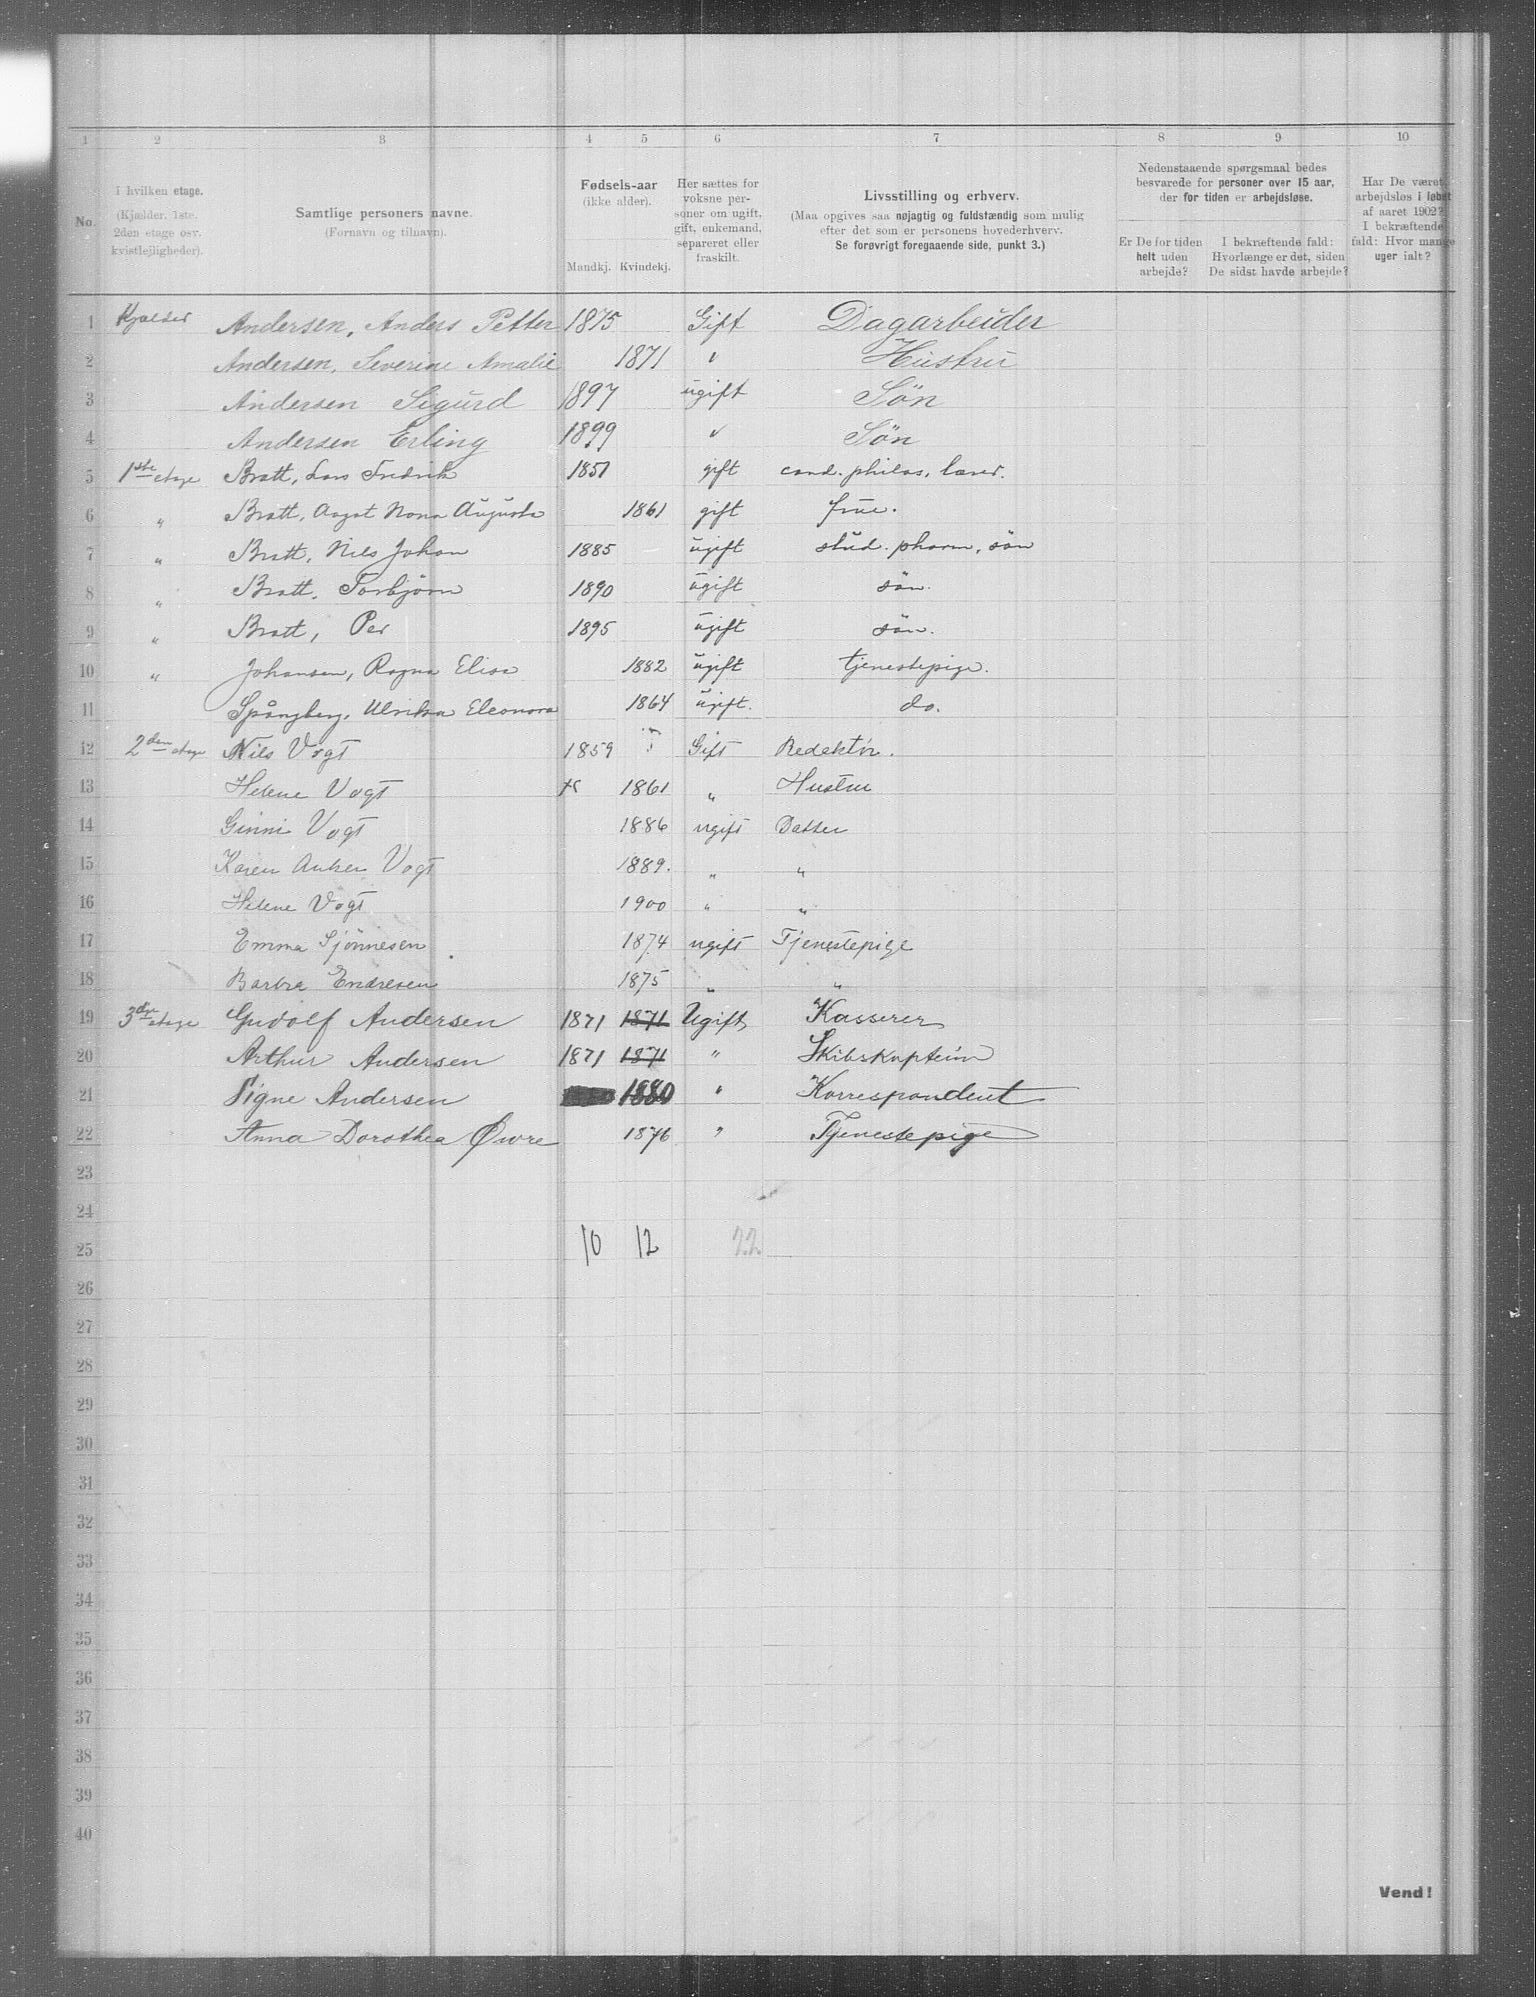 1 2 3 4 5 6 7 8 9 10
No.
I hvilken etage.
(Kjælder, 1ste, 2den etage osv. kvistlejligheder).
Samtlige personers navne.
(Fornavn og tilnavn).
Fødsels-aar
(ikke alder).
Mandkj. Kvindekj.
Her sættes for voksne personer om ugift, gift, enkemand, separeret eller fraskilt.
Livsstilling og erhverv.
(Maa opgives saa nøjagtig og fuldstændig som mulig efter det som er personens hovederhverv.
Se forøvrigt foregaaende side, punkt 3.)
Nedenstaaende spørgsmaal bedes besvarede for personer over 15 aar, der for tiden er arbejdsløse.
Er De for tiden helt uden arbejde?
I bekræftende fald: Hvorlænge er det, siden De sidst havde arbejde?
Har De været arbejdsløs i løbet af aaret 1902? I bekræftende fald: Hvor mange uger ialt?
1 Kjælder Andersen, Anders Petter 1875 Gift Dagarbeider
2 Andersen, Severine Amalie 1871 " Hustru
3 Andersen Sigurd 1897 ugift Søn
4 Andersen Erling 1899 " Søn
5 1ste etage Bratt, Lars Fredrik 1851 gift cand. philos, lærer.
6 " Bratt, Nona Augusta 1861 gift frue.
7 " Bratt, Nils Johan 1885 ugift stud. pharm, søn
8 " Bratt, Torbjørn 1890 ugift søn.
9 " Bratt, Per 1895 ugift søn.
10 " Johansen, Ragna Elisa 1882 ugift tjenestepige.
11 Spångberg, Ulrikra Eleonora 1864 ugift. do.
12 2den etage Nils Vogt 1859 Gift Redaktör.
13 Helene Vogt 1861 " Hustru
14 Ginni Vogt 1886 ugift Datter
15 Karen Anker Vogt 1889. " "
16 Helene Vogt 1900 " "
17 Emma Sjönnesen 1874 ugift Tjenestepige
18 Barbra Endresen 1875 " "
19 3die etage Gudolf Andersen 1871 1871 Ugift Kasserer
20 Arthur Andersen 1871 1871 " Skibskaptein
21 Signe Andersen 1880 " Korrespondent
22 Anna Dorothea Øvre 1876 " Tjenestepige
23
24
25 10 12 22
26
27
28
29
30
31
32
33
34
35
36
37
38
39
40
Vend!